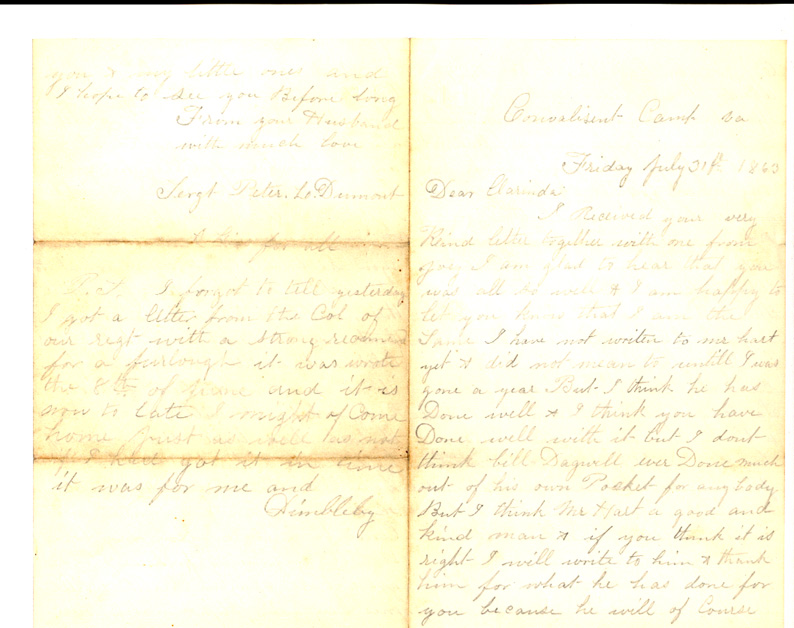 Convalisent Camp va
Friday July 31st 1863
Dear Clarinda
I Received your very
Kind letter together with one from
I am glad to hear that you
was all so well & I am happy to
let you know that I am the
Same I have not writen to mr hart
yet & did not mean to untill I was
gone a year But I think he has
Done well & I think you have
Done well with it but I dont
think bill Dagwell ever Done much
out of his own Pocket for any body
But I think Mr Hart a good and
kind man & if you think it is
right I will write to him & thank
him for what he has done for
you because he will of Course
you & my little ones and
I hope to See you Before long
From your Husband
with much love
Sergt Peter. L. Dumont
A Kiss for all
P.S. I forgot to tell yesterday
I got a letter from the Col of
our regt with a Strong recomend
for a furlough it was wrote
the 8th of June and it is
now to late I might of Come
home Just as well as not
if I had got it in time
it was for me and
Himbleby